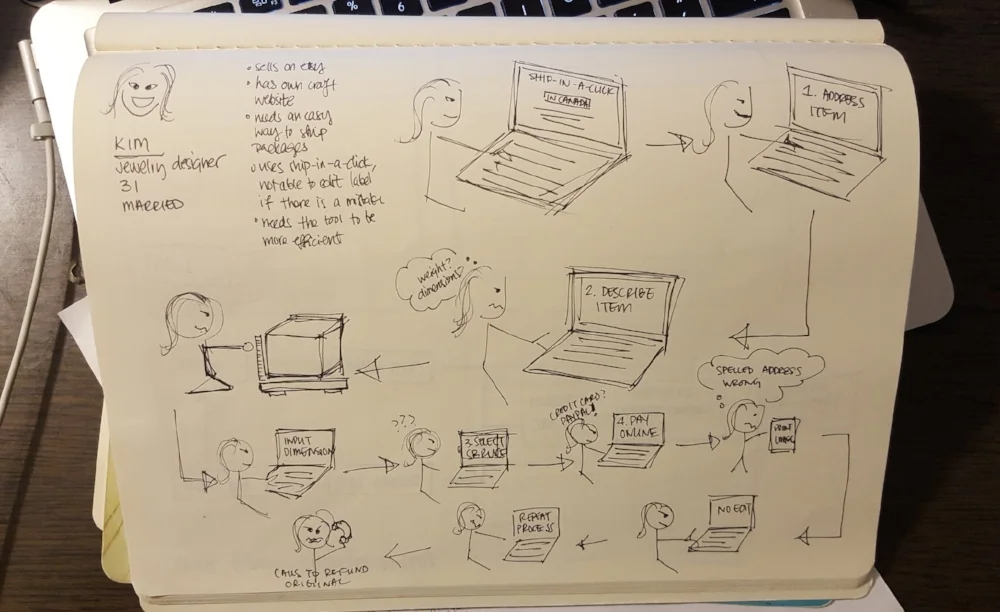 KIM
jewelry designer
31
MARRIED
• sells on etsy
• has own craft
website
• needs an easy
way to ship
packages
• uses ship-in-a-click,
not able to edit label
if there is a mistake
• needs the tool to be
more efficient
SHIP-IN-A-CLICK
IN CANADA
1. ADDRESS
ITEM
weight?
dimensions?
2. DESCRIBE
ITEM
INPUT
DIMENSION
???
3. SELECT
SERVICE
CREDIT CARD?
PAYPAL?
4. PAY
ONLINE
SPELLED ADDRESS
WRONG
PRINT
LABEL
NO EDIT
REPEAT
PROCESS
CALLS TO REFUND
ORIGINAL